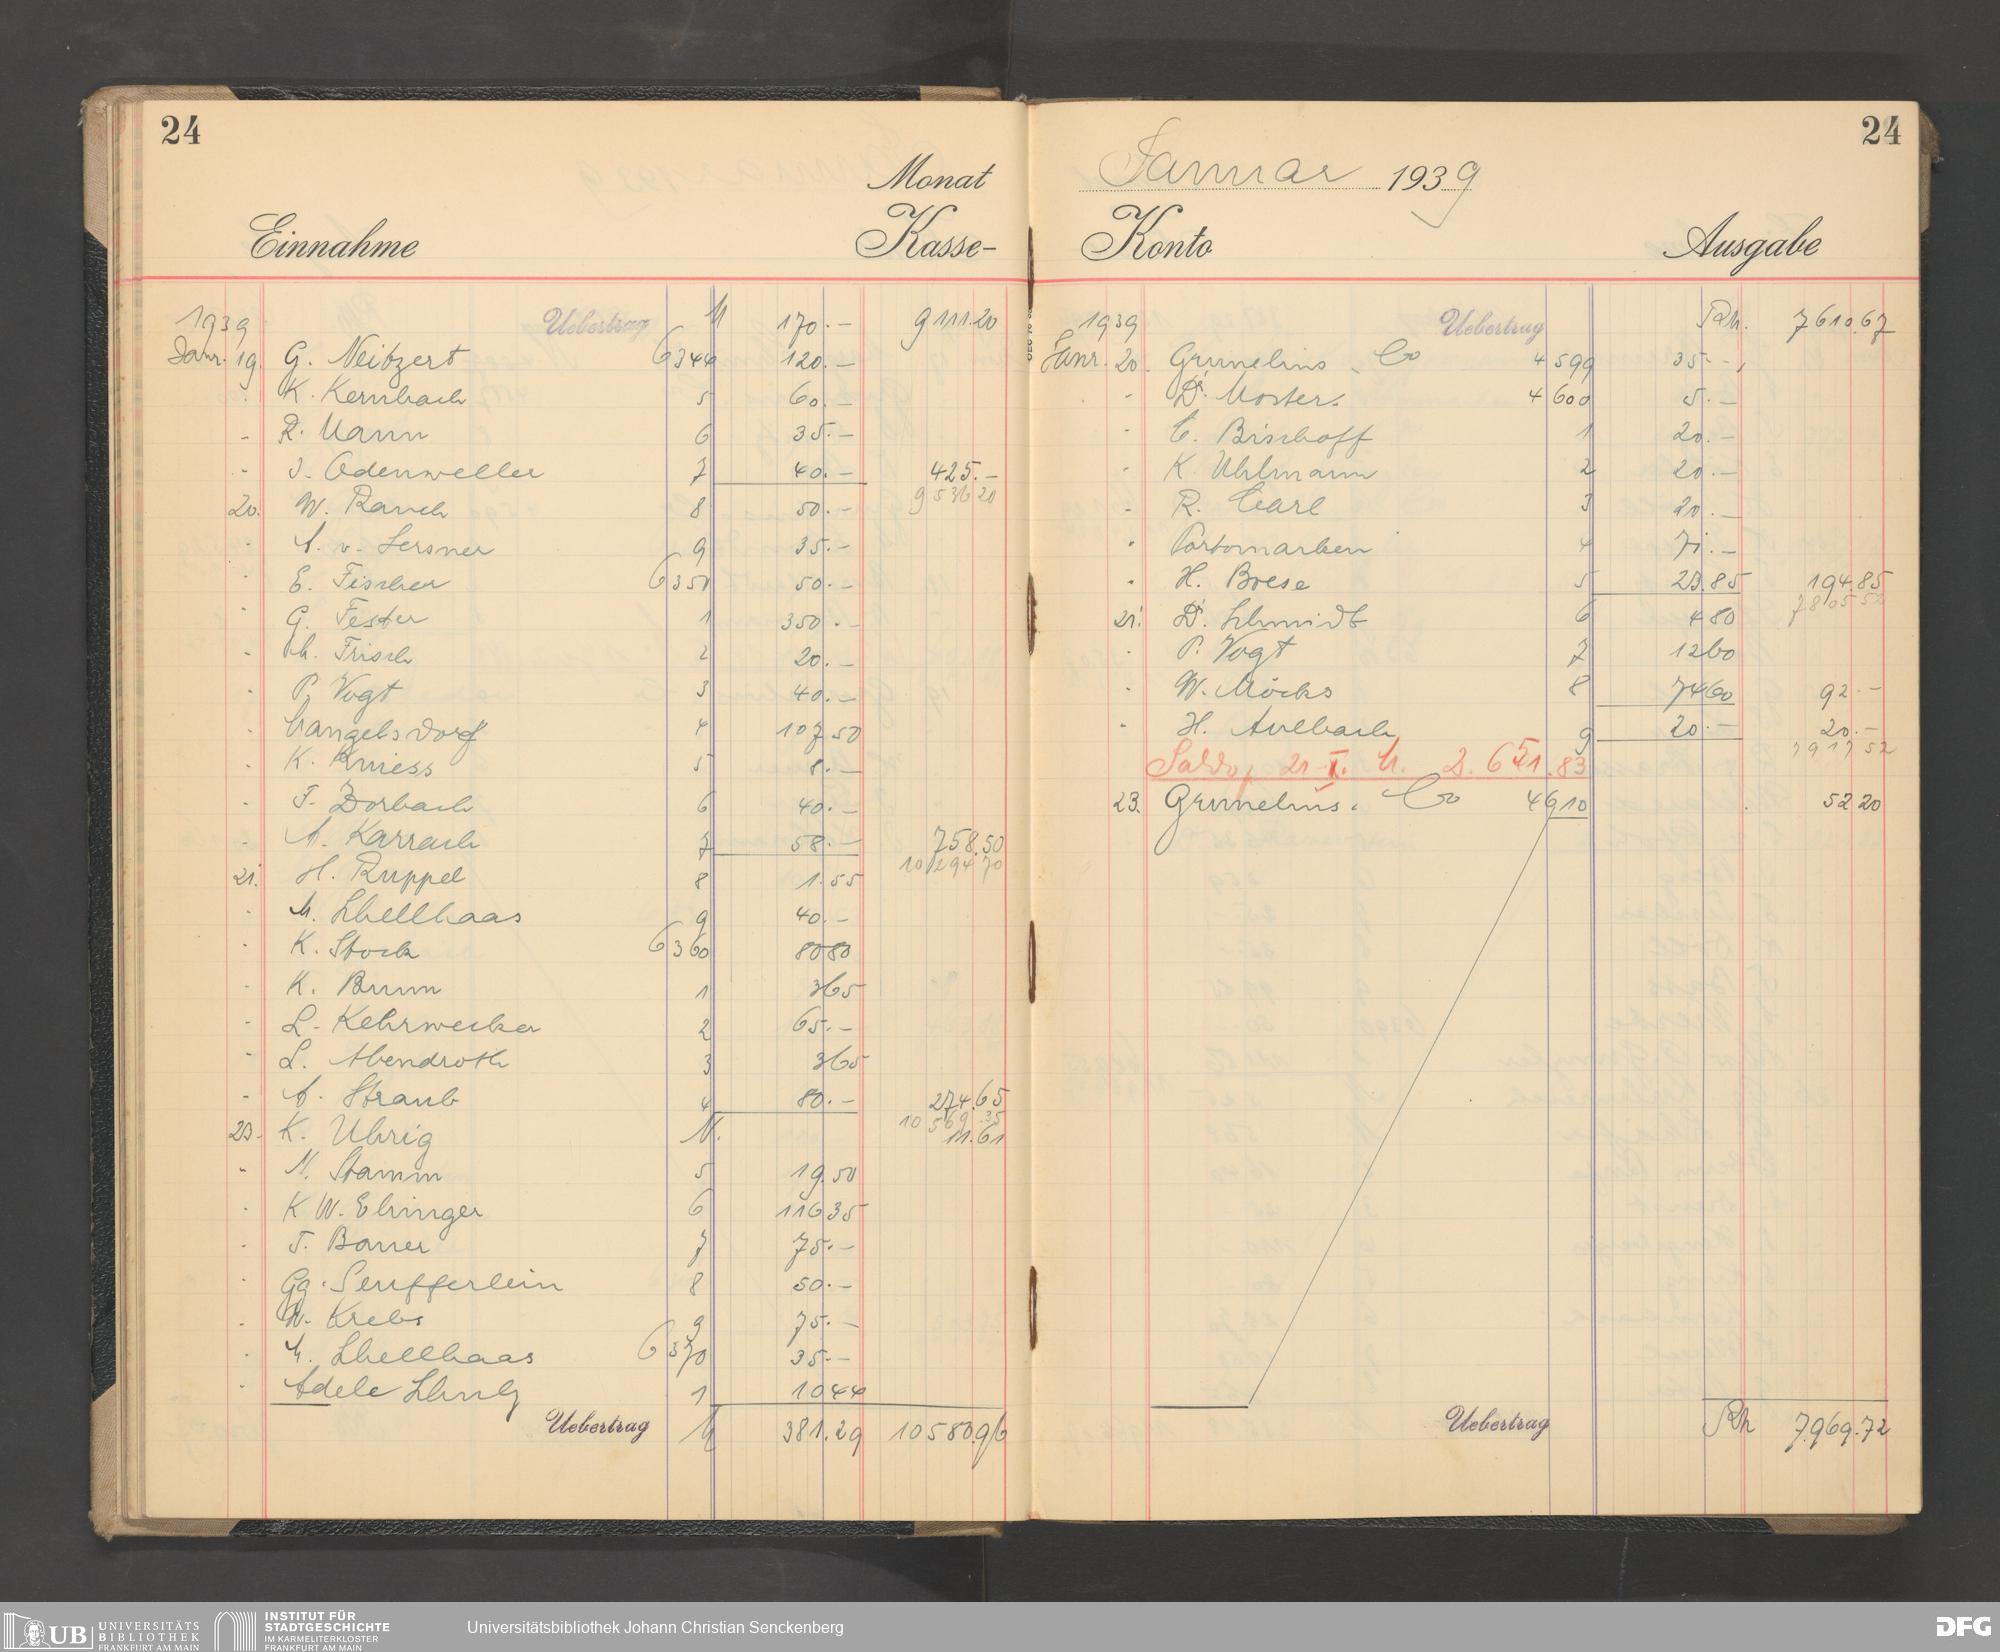 24
Monat
Einnahme Kasse-
1939 Uebertrag M 170.- 9111.20
Janr. 19. G. Neibzert 6344 120.-
" K. Kernbach 5 60.-
- R. Mann 6 35.-
- J. Odenweller 7 40.- 425.-
9536 20
20. W. Rauch 8 50.-
- A. v. Lersner 9 35.-
- E. Fischer 6350 50.-
- G. Fester 1 350.-
- M. Frisch 2 20.-
- P. Vogt 3 40.-
- Cangelsdorf 4 107.50
- K. Kniess 5 8.-
- F. Dorbach 6 40.-
- A. Karrach 7 58.- 758.50
10 294 70
21. H. Ruppel 8 1.55
- M. Schellhaas 9 40.-
- K. Stock 6360 80 80
- K. Brunn 1 3 65
- L. Kehrwecker 2 65.-
- L. Abendroth 3 3 65
- A. Straub 4 80.- 274.65
10 569.35
23. K. Uhrig N. 11.61
- N. Stamm 5 19.50
- K. W. Ehinger 6 116 35
- J. Bauer 7 75.-
- Gg. Seufferlein 8 50.-
- W. Krebs 9 75.-
- M. Schellhaas 6370 35.-
- Adele Schulz 1 10 44
Uebertrag M 381.29 10580.96
24
Januar 1939
Konto Ausgabe
1939 Uebertrag Rm. 7610.67
Janr. 20. Grunelius & Co 4599 35.-
- Dr. Moster. 4600 5.-
- E. Bischoff 1 20.-
- K. Uhlmann 2 20.-
- R. Carl 3 20.-
- Portomarken 4 71.-
- H. Boese 5 23.85 194.85
7805 52
21. Dr. Schmidt 6 4 80
- P. Vogt 7 12 60
- W. Möcks 8 74 60 92.-
- H. Aulbach 9 20.- 20.-
7917 52
Saldo, 21. I. M. 2.651.83
23. Grunelius & Co 4610 52 20
Uebertrag Rm 7.969.72
UB UNIVERSITÄTS
BIBLIOTHEK
FRANKFURT AM MAIN
INSTITUT FÜR
STADTGESCHICHTE
IM KARMELITERKLOSTER
FRANKFURT AM MAIN
Universitätsbibliothek Johann Christian Senckenberg
DFG